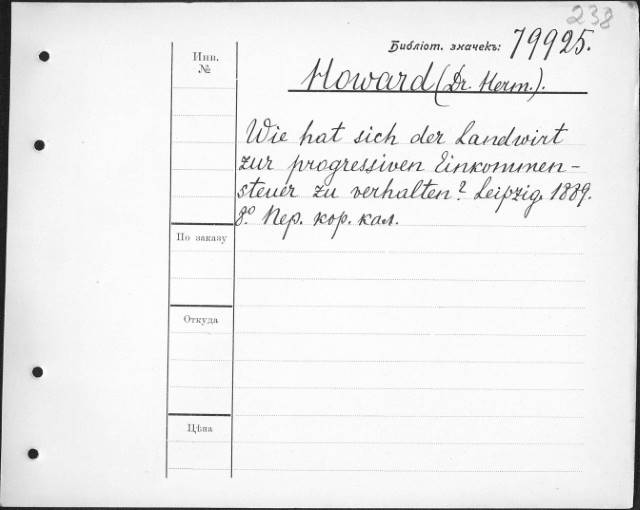 238
Библіот. значекъ: 79925.
Инв. №
Howard (Dr. Herm.).
Wie hat sich der Landwirt
zur progressiven Einkommen-
steuer zu verhalten? Leipzig. 1889.
8.º Пер. кор. кал.
По заказу
Откуда
Цѣна